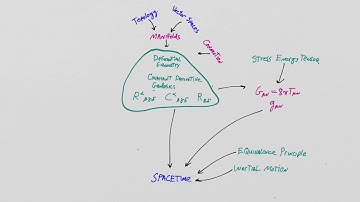 Topology
Vector Spaces
MANIFOLDS
CONNECTION
DIFFERENTIAL
GEOMETRY
COVARIANT DERIVATIVE
GEODESICS
STRESS ENERGY TENSOR
EQUIVALENCE PRINCIPLE
INERTIAL MOTION
SPACETIME